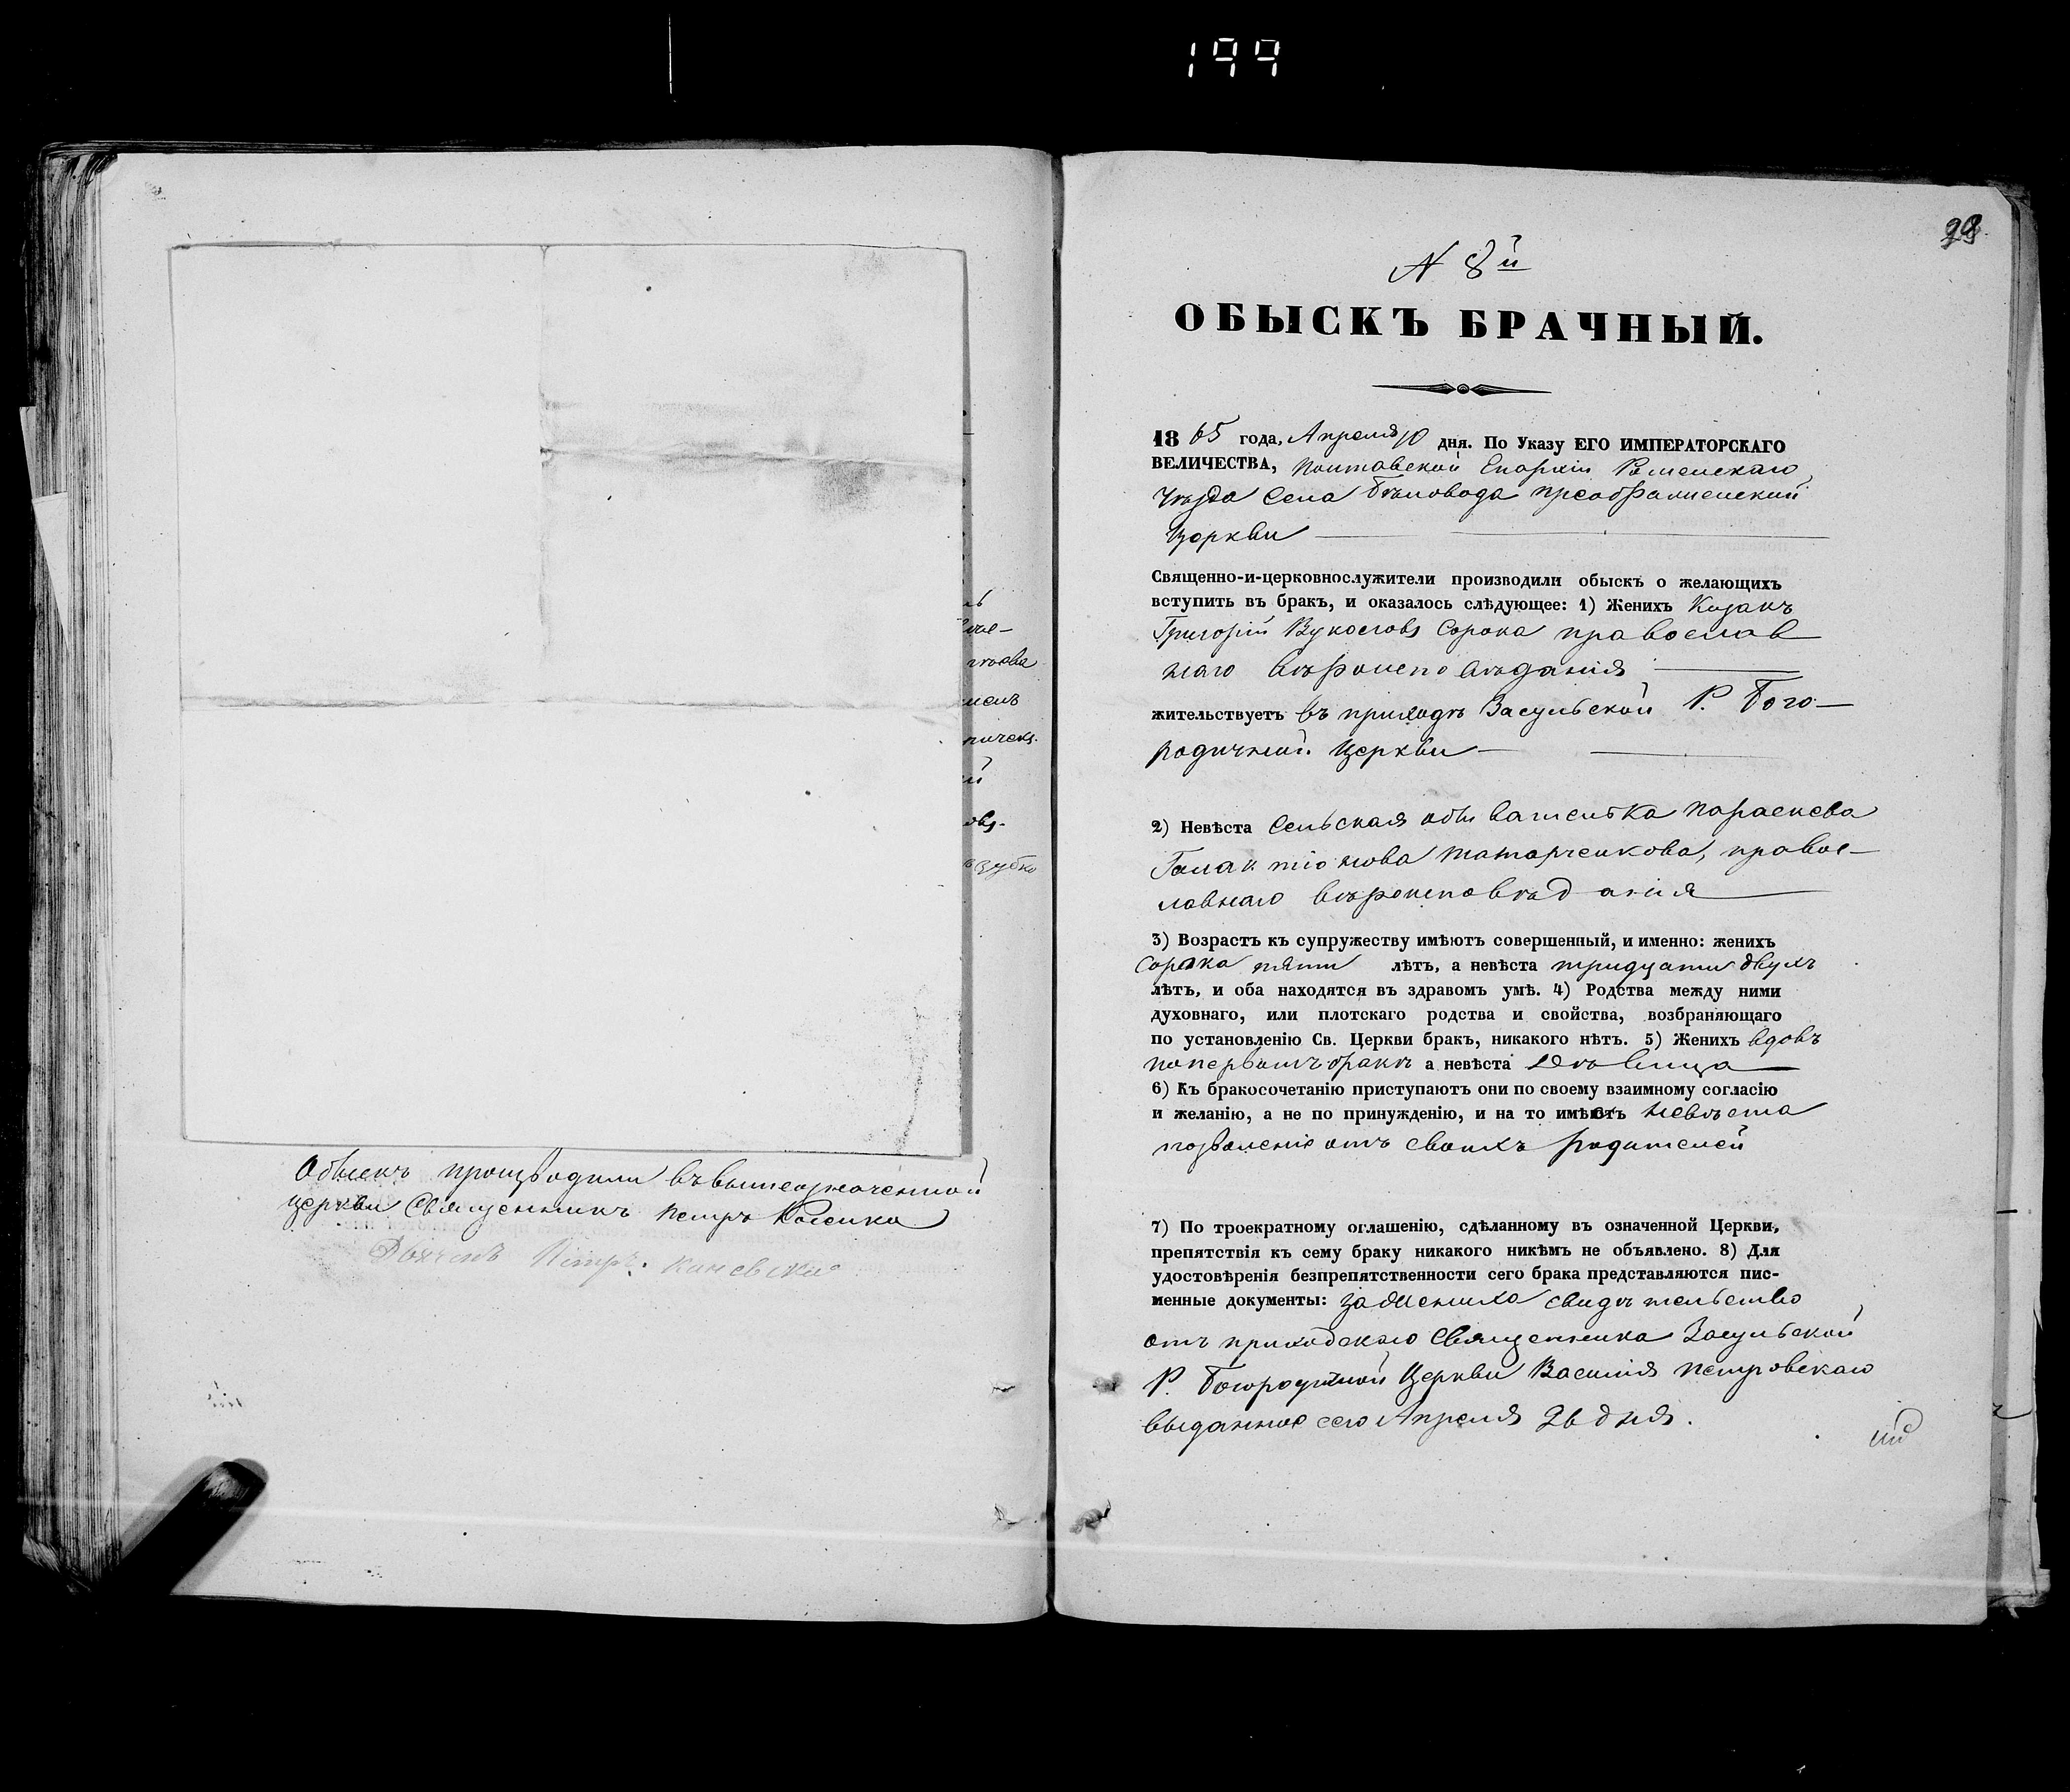 199
ль
мъ
ничекъ.
й
овъ.
зубко
Обыскъ производили въ вышеозначенной
церкви Священникъ Петръ
Дьячекъ Петръ Каневскій
28
N 8й
ОБЫСКЪ БРАЧНЫЙ.
18 65 года, Апреля дня. По Указу ЕГО ИМПЕРАТОРСКАГО
ВЕЛИЧЕСТВА, Полтавской Епархіи Роменскаго
уѣзда села Бѣловода преображенской
Церкви
Священно-и-церковнослужители производили обыскъ о желающихъ
вступить въ бракъ, и оказалось слѣдующее: 1) Женихъ Козакъ
Григорій Вуколовъ Сорока православ
наго вѣроисповѣданія
жительствуетъ въ приходѣ Засульской Р. Бого-
родичной Церкви
2) Невѣста Сельская обывателька Параскева
Галактіонова Татарченкова, правос-
лавнаго вѣроисповѣданія
3) Возрастъ къ супружеству имѣютъ совершенный, и именно: женихъ
сорока пяти лѣтъ, а невѣста тридцати двухъ
лѣтъ, и оба находятся въ здравомъ умѣ. 4) Родства между ними
духовнаго, или плотскаго родства и свойства, возбраняющаго
по установленію Св. Церкви бракъ, никакого нѣтъ. 5) Женихъ вдовъ
по первомъ бракѣ а невѣста дѣвица
6) Къ бракосочетанію приступаютъ они по своему взаимному согласію
и желанію, а не по принужденію, и на то имѣетъ невѣста
позволеніе отъ своихъ родителей
7) По троекратному оглашенію, сдѣланному въ означенной Церкви,
препятствія къ сему браку никакого никѣмъ не объявлено. 8) Для
удостовѣренія безпрепятственности сего брака представляются пис-
менные документы: за жениха свидѣтельство
отъ приходскаго Священника Засульской
Р. Богородичной Церкви Василія Петровскаго
выданное сего Апреля 26 дня.